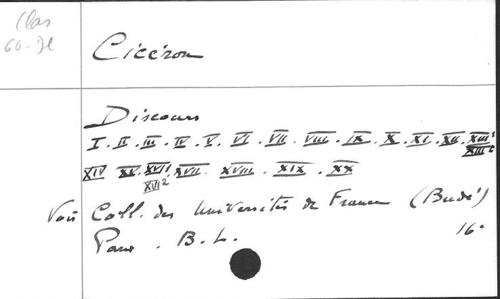 Clas
60-Je
Cicéron
Discours
I. II. III. IV. V. VI. VII. VIII. IX. X. XI. XII. XIII¹
XIII²
XIV XV. XVI¹. XVII. XVIII. XIX. XX
XVI²
Voir Coll. des Universités de France (Budé)
Paris. B.L. 16°